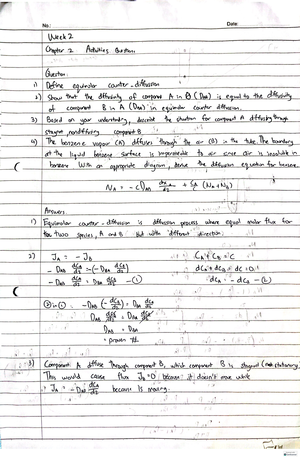 No:
Date:
Week 2
Chapter 2 Activities Question
Question:
1) Define equimolar counter-diffusion
2) Show that the diffusivity of component A in B (DAB) is equal to the diffusivity
of component B in A (DBA) in equimolar counter diffusion.
3) Based on your understanding, describe the situation for component A diffusing through
stagnant, nondiffusing component B
4) The benzene vapor (A) diffuses through the air (B) in the tube. The boundary
at the liquid benzene surface is impermeable to air since air is insoluble in
benzene. With an appropriate diagram, derive the diffusion equation for benzene.
NA = -cDAB dxA/dz + CA/C (NA + NB)
Answers
1) Equimolar counter-diffusion is diffusion process where equal molar flux for
the two species, A and B but with different direction.
2) JA = -JB
CA + CB = C
-DAB dCA/dz = -(-DBA dCB/dz)
dCA + dCB = dC = 0
-DAB dCA/dz = DBA dCB/dz - (1)
dCA = -dCB - (2)
(2) in (1) -DAB (-dCB/dz) = DBA dCB/dz
DAB dCB/dz = DBA dCB/dz
DAB = DBA
proven #
3) Component A diffuse through component B, which component B is stagnant (stationary)
This would cause flux JB = 0 because it doesn't move while
JA = -DAB dCA/dz because is moving.